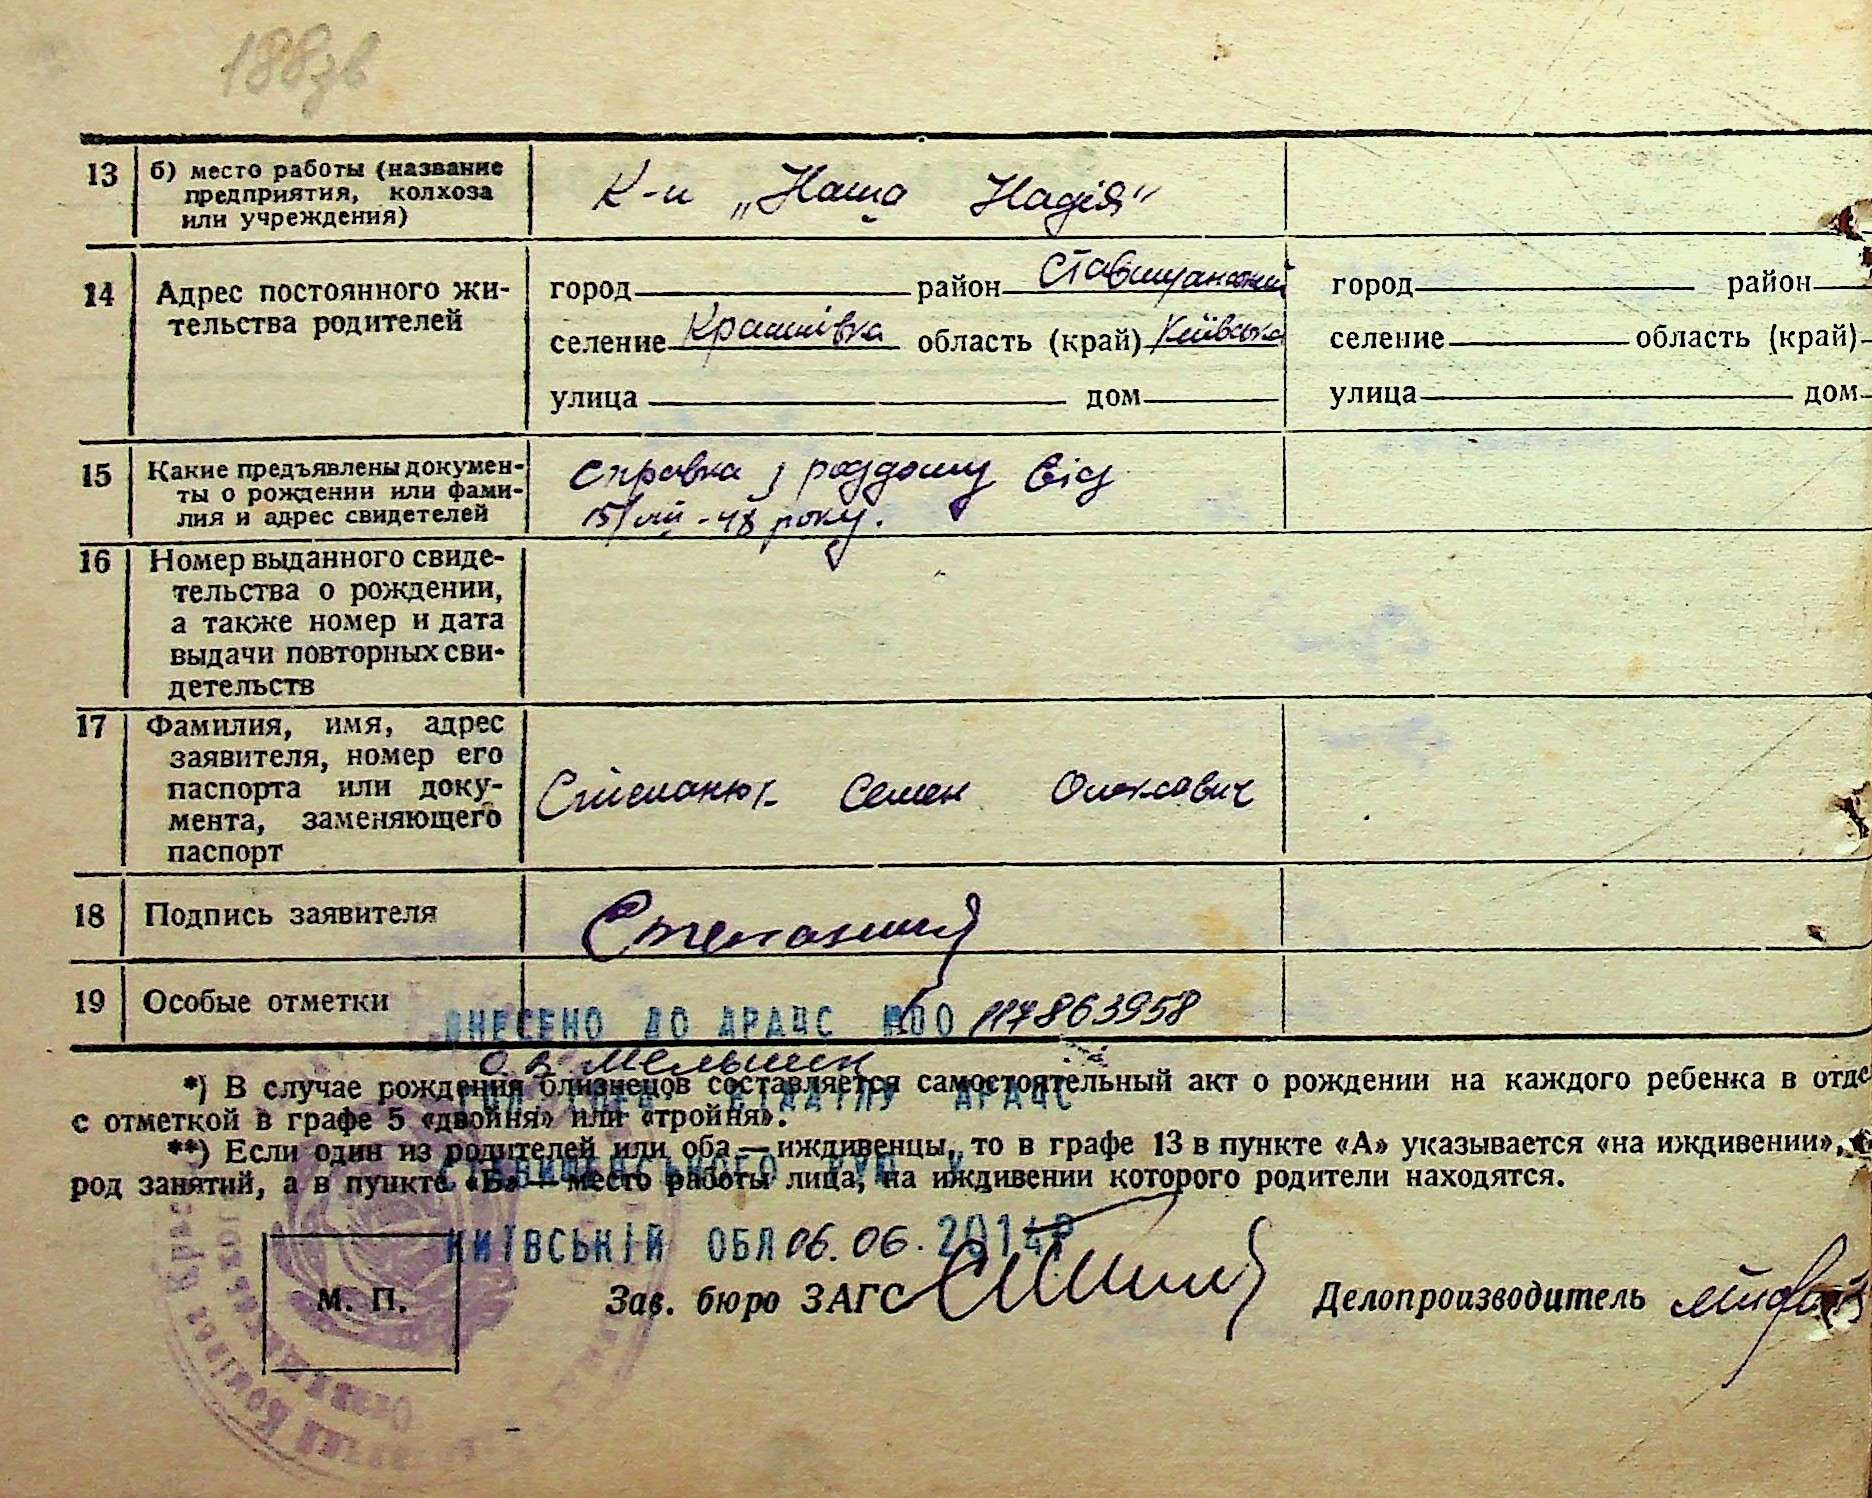 188зв
13 б) место работы (название
предприятия, колхоза
или учреждения)
К-п „Наша Надія"
14 Адрес постоянного жи-
тельства родителей
город район Ставищанский город район
селение Крашівка область (край) Київська селение область (край)
улица дом улица дом
15 Какие предъявлены докумен-
ты о рождении или фами-
лия и адрес свидетелей
Справка з роддому від
15/ -48 року.
16 Номер выданного свиде-
тельства о рождении,
а также номер и дата
выдачи повторных сви-
детельств
17 Фамилия, имя, адрес
заявителя, номер его
паспорта или доку-
мента, заменяющего
паспорт
Степанюк Семен Олексович
18 Подпись заявителя
19 Особые отметки
ВНЕСЕНО ДО ДРАЦС №00 117863958
*) В случае рождения близнецов составляется самостоятельный акт о рождении на каждого ребенка в отде
ВІДДІЛУ ДРАЦС
с отметкой в графе 5 «двойня» или «тройня».
**) Если один из родителей или оба — иждивенцы, то в графе 13 в пункте «А» указывается «на иждивении»,
СТАВИЩЕНСЬКОГО РУЮ У
род занятий, а в пункте «Б» — место работы лица, на иждивении которого родители находятся.
КИЇВСЬКІЙ ОБЛ 06.06.2014Р
М. П. Зав. бюро ЗАГС Делопроизводитель